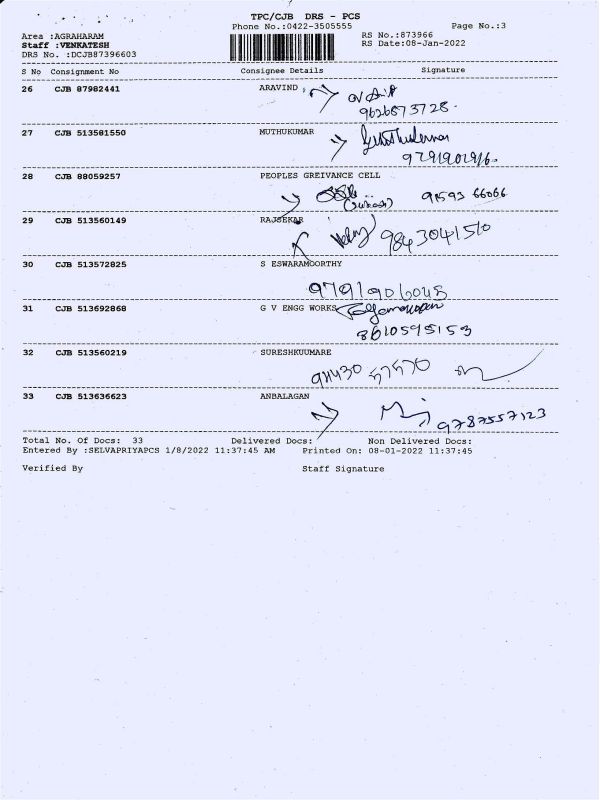 TPC/CJB DRS - PCS
Phone No.:0422-3505555
Page No.:3
Area :AGRAHARAM
RS No.:873966
Staff :VENKATESH
RS Date:08-Jan-2022
DRS No. :DCJB87396603
S No Consignment No Consignee Details Signature
26 CJB 87982441 ARAVIND
9626873728.
27 CJB 513581550 MUTHUKUMAR
9791902916.
28 CJB 88059257 PEOPLES GREIVANCE CELL
91593 66066
29 CJB 513560149 RAJSEKAR
9843041510
30 CJB 513572825 S ESWARAMOORTHY
31 CJB 513692868 G V ENGG WORKS
8610595153
32 CJB 513560219 SURESHKUUMARE
33 CJB 513636623 ANBALAGAN
9787557123
Total No. Of Docs: 33 Delivered Docs: Non Delivered Docs:
Entered By :SELVAPRIYAPCS 1/8/2022 11:37:45 AM Printed On: 08-01-2022 11:37:45
Verified By Staff Signature